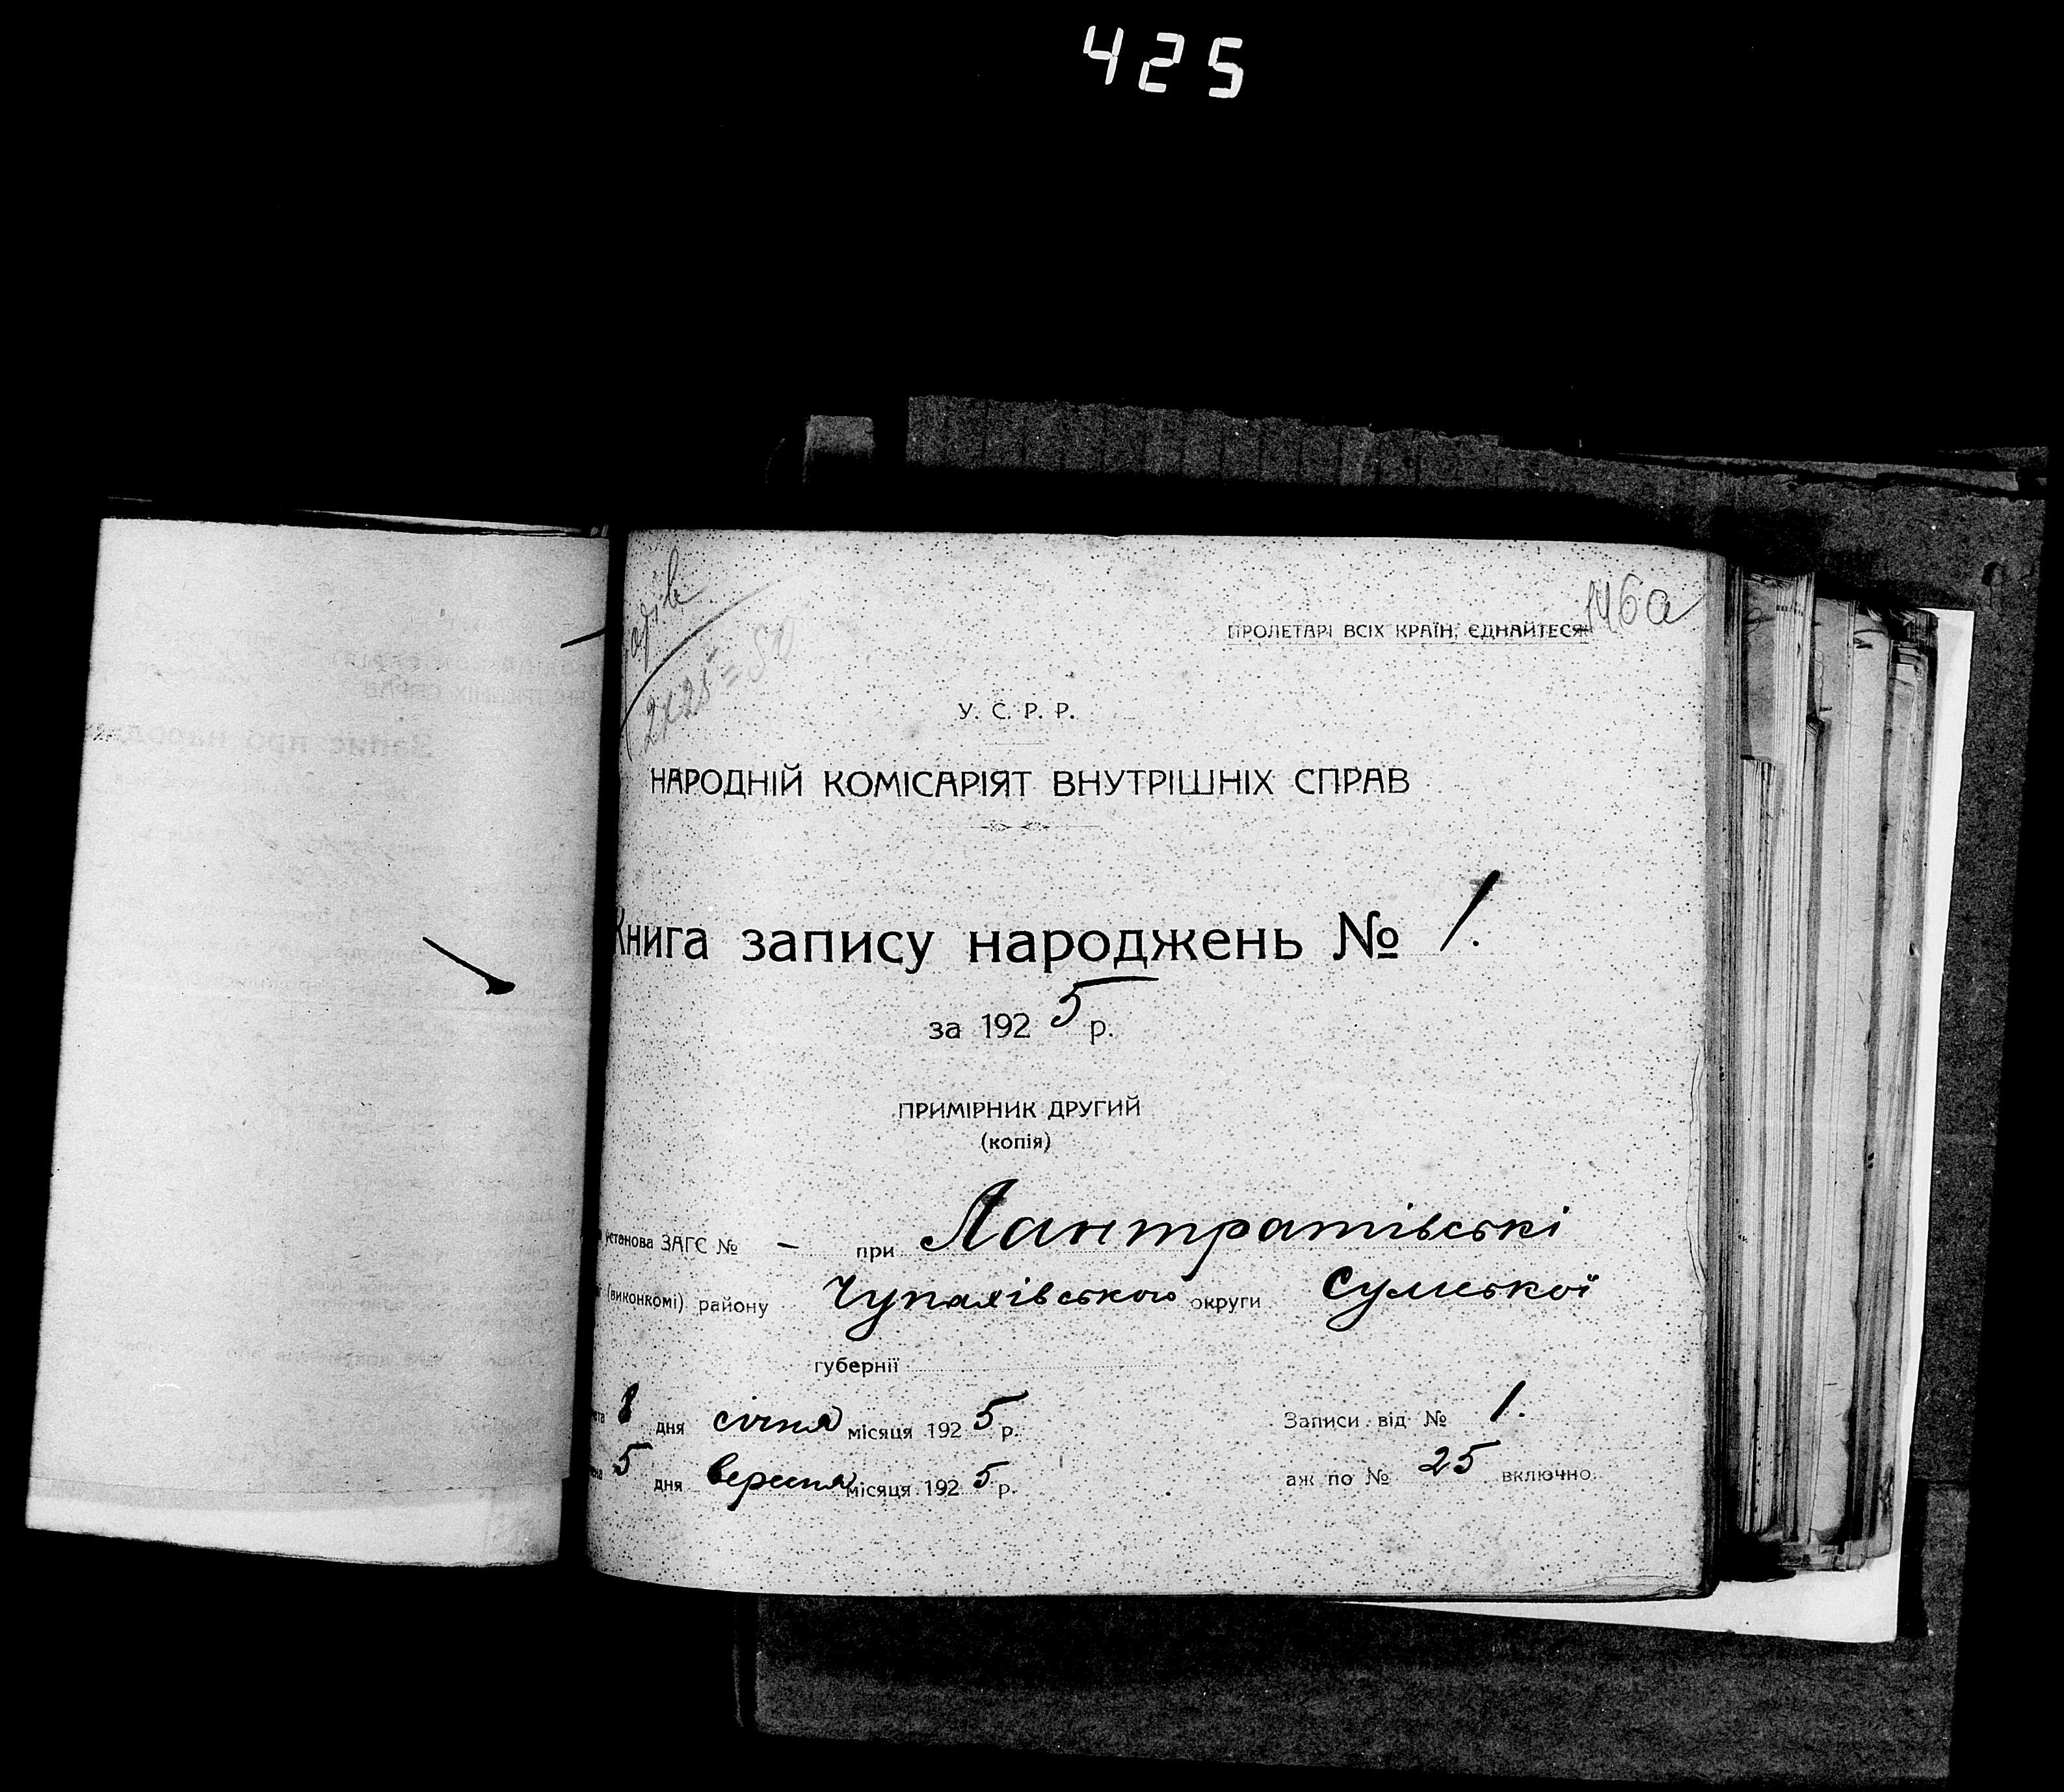 425
146а
ПРОЛЕТАРІ ВСІХ КРАЇН, ЄДНАЙТЕСЯ
2х25=50
У. С. Р. Р.
НАРОДНІЙ КОМІСАРІЯТ ВНУТРІШНІХ СПРАВ
Книга запису народжень № 1.
за 1925 р.
ПРИМІРНИК ДРУГИЙ
(копія)
установа ЗАГС № - при Лантратівські
(виконкомі) району Чупахівського округи Сумської
губернії
8 дня січня місяця 1925 р. Записи від № 1.
5 дня вересня місяця 1925 р. аж по № 25 включно.